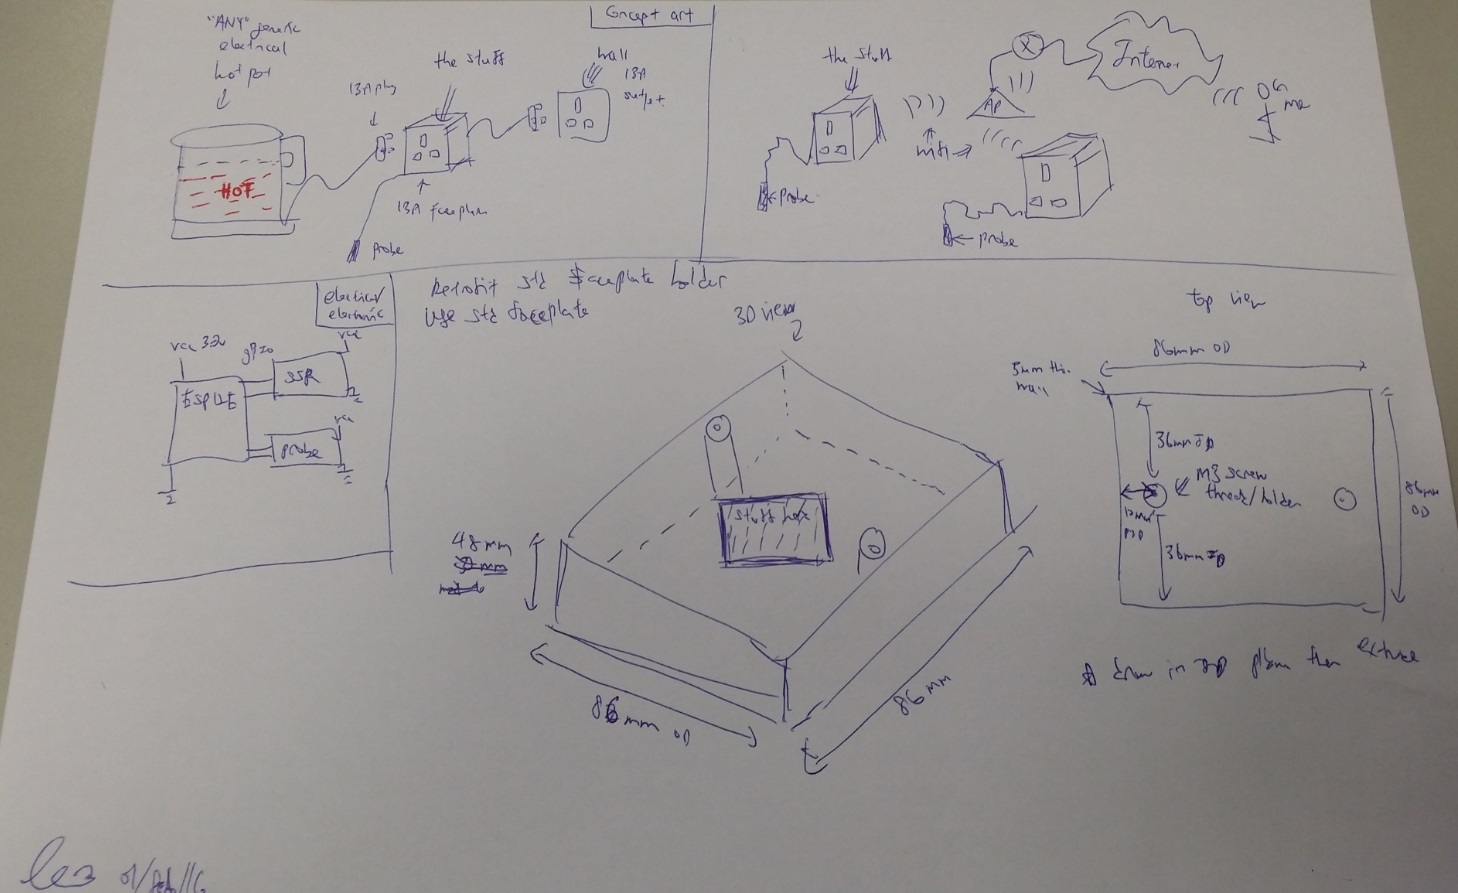 Concept art
"ANY" generic
electrical
hot pot
HOT
13A plug
the stuff
wall
13A
outlet
13A faceplate
probe
the stuff
AP
X
Internet
me
wifi
probe
probe
electrical/
electronic
vcc 3.3v
gpio
vcc
SSR
ESP12E
vcc
probe
Retrofit std faceplate holder
Use std faceplate
3D view
stuff here
48mm
86mm OD
86mm
top view
86mm OD
5mm
wall
36mm ID
M3 screw
thread/holder
86mm
OD
36mm ID
draw in 2D plan then extrude